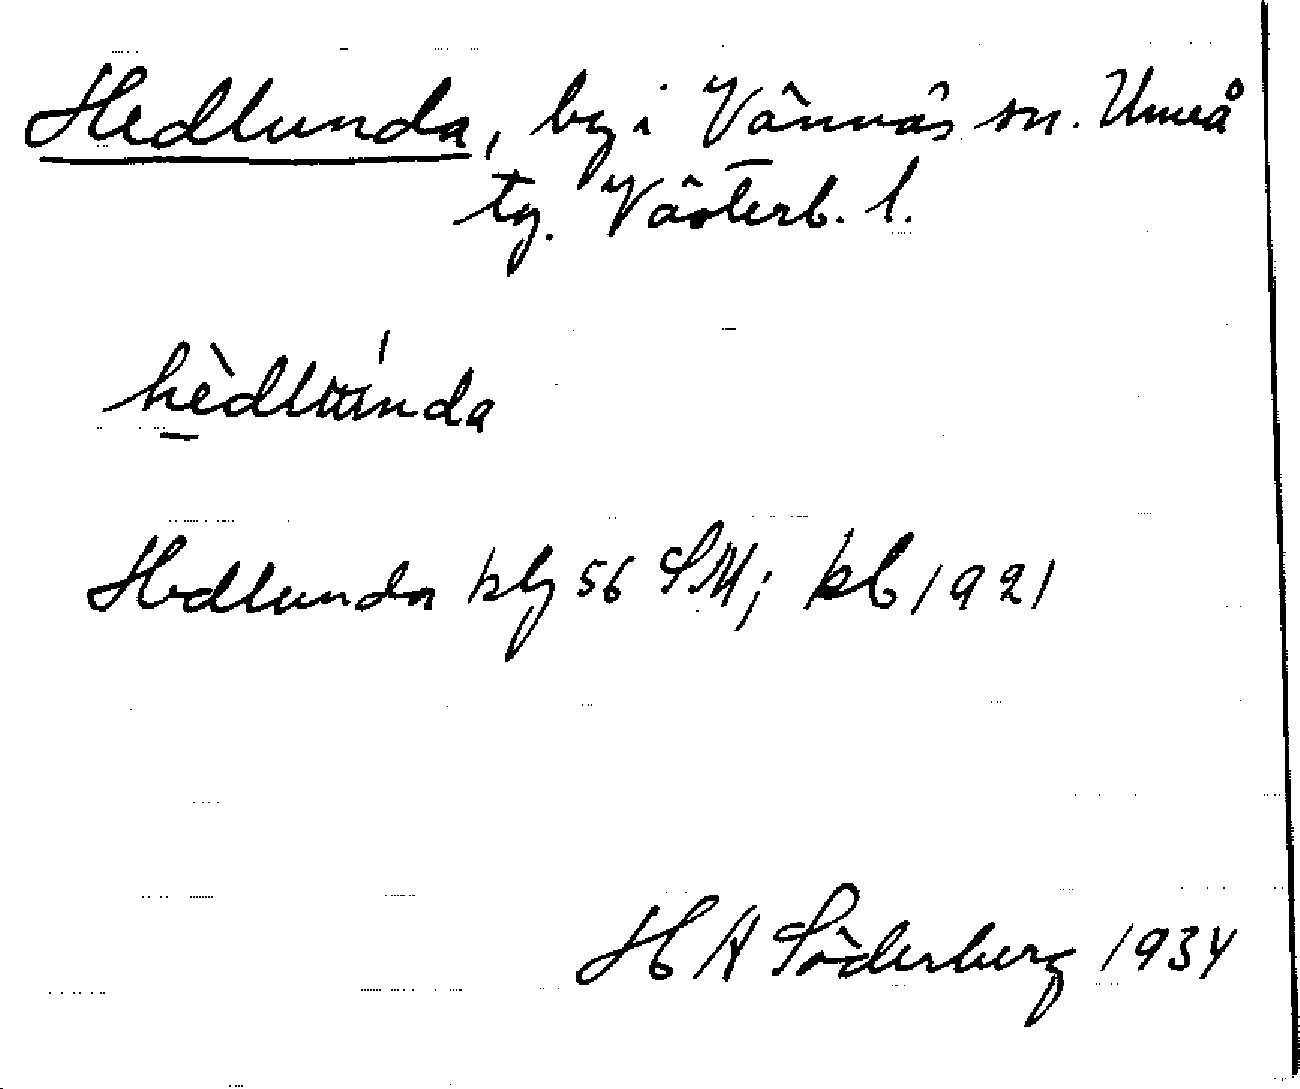 Hedlunda, by i Vännäs sn. Umeå
tg. Västerb. l.
Hedlunda kbg 56 SM; kb 1921
H A Söderberg 1934